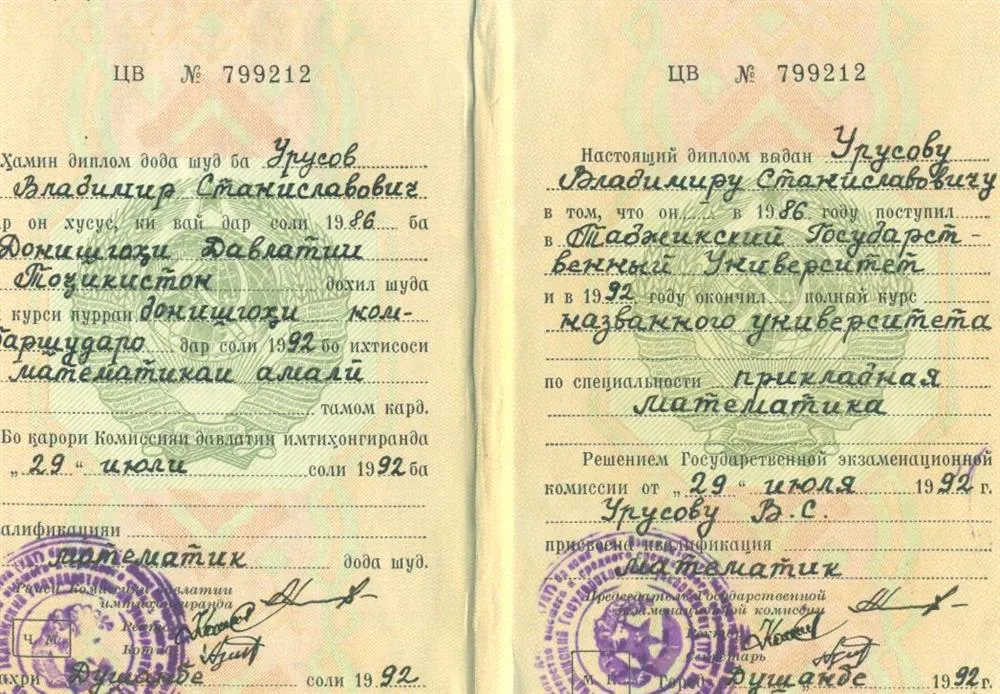 ЦВ № 799212
Ҳамин диплом дода шуд ба Урусов
Владимир Станиславович
р он хусус, ки вай дар соли 1986 ба
Донишгоҳи Давлатии
Тоҷикистон дохил шуда
курси пурраи донишгоҳи ном-
баршударо дар соли 1992 бо ихтисоси
математикаи амалӣ
тамом кард.
Бо қарори Комиссияи давлатии имтиҳонгиранда
„29“ июли соли 1992 ба
алификацияи
математик дода шуд.
Раиси Комиссияи давлатии
имтиҳонгиранда
Ректор
Котиб
Ч. М.
аҳри Душанбе соли 1992
ЦВ № 799212
Настоящий диплом выдан Урусову
Владимиру Станиславовичу
в том, что он в 1986 году поступил
в Таджикский Государст-
венный Университет
и в 1992 году окончил полный курс
названного университета
по специальности прикладная
математика
Решением Государственной экзаменационной
комиссии от „29“ июля 1992 г.
Урусову В.С.
присвоена квалификация
математик
Председатель Государственной
экзаменационной комиссии
Ректор
Секретарь
М. П.
Город Душанбе 1992 г.